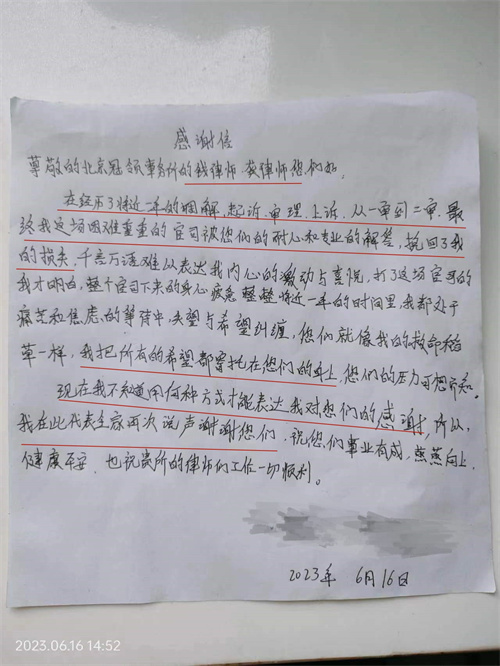 感谢信
尊敬的北京冠领事务所的钱律师、莪律师您们好。
在经历了将近一年的调解，起诉，审理，上诉，从一审到二审，最
终我这场困难重重的官司被您们的耐心和专业的解答，挽回了我
的损失，千言万语难以表达我内心的激动与喜悦，打了这场官司的
我才明白，整个官司下来的身心疲惫 整整将近一年的时间里，我都处于
痛苦和焦虑的等待中，失望与希望纠缠，您们就像我的救命稻
草一样，我把所有的希望都寄托在您们的身上，您们的压力可想而知。
现在我不知道用何种方式才能表达我对您们的感谢，所以，
我在此代表全家再次说声谢谢您们，祝您们事业有成，蒸蒸向上，
健康平安，也祝贵所的律师们工作一切顺利。
2023年 6月16日
2023.06.16 14:52